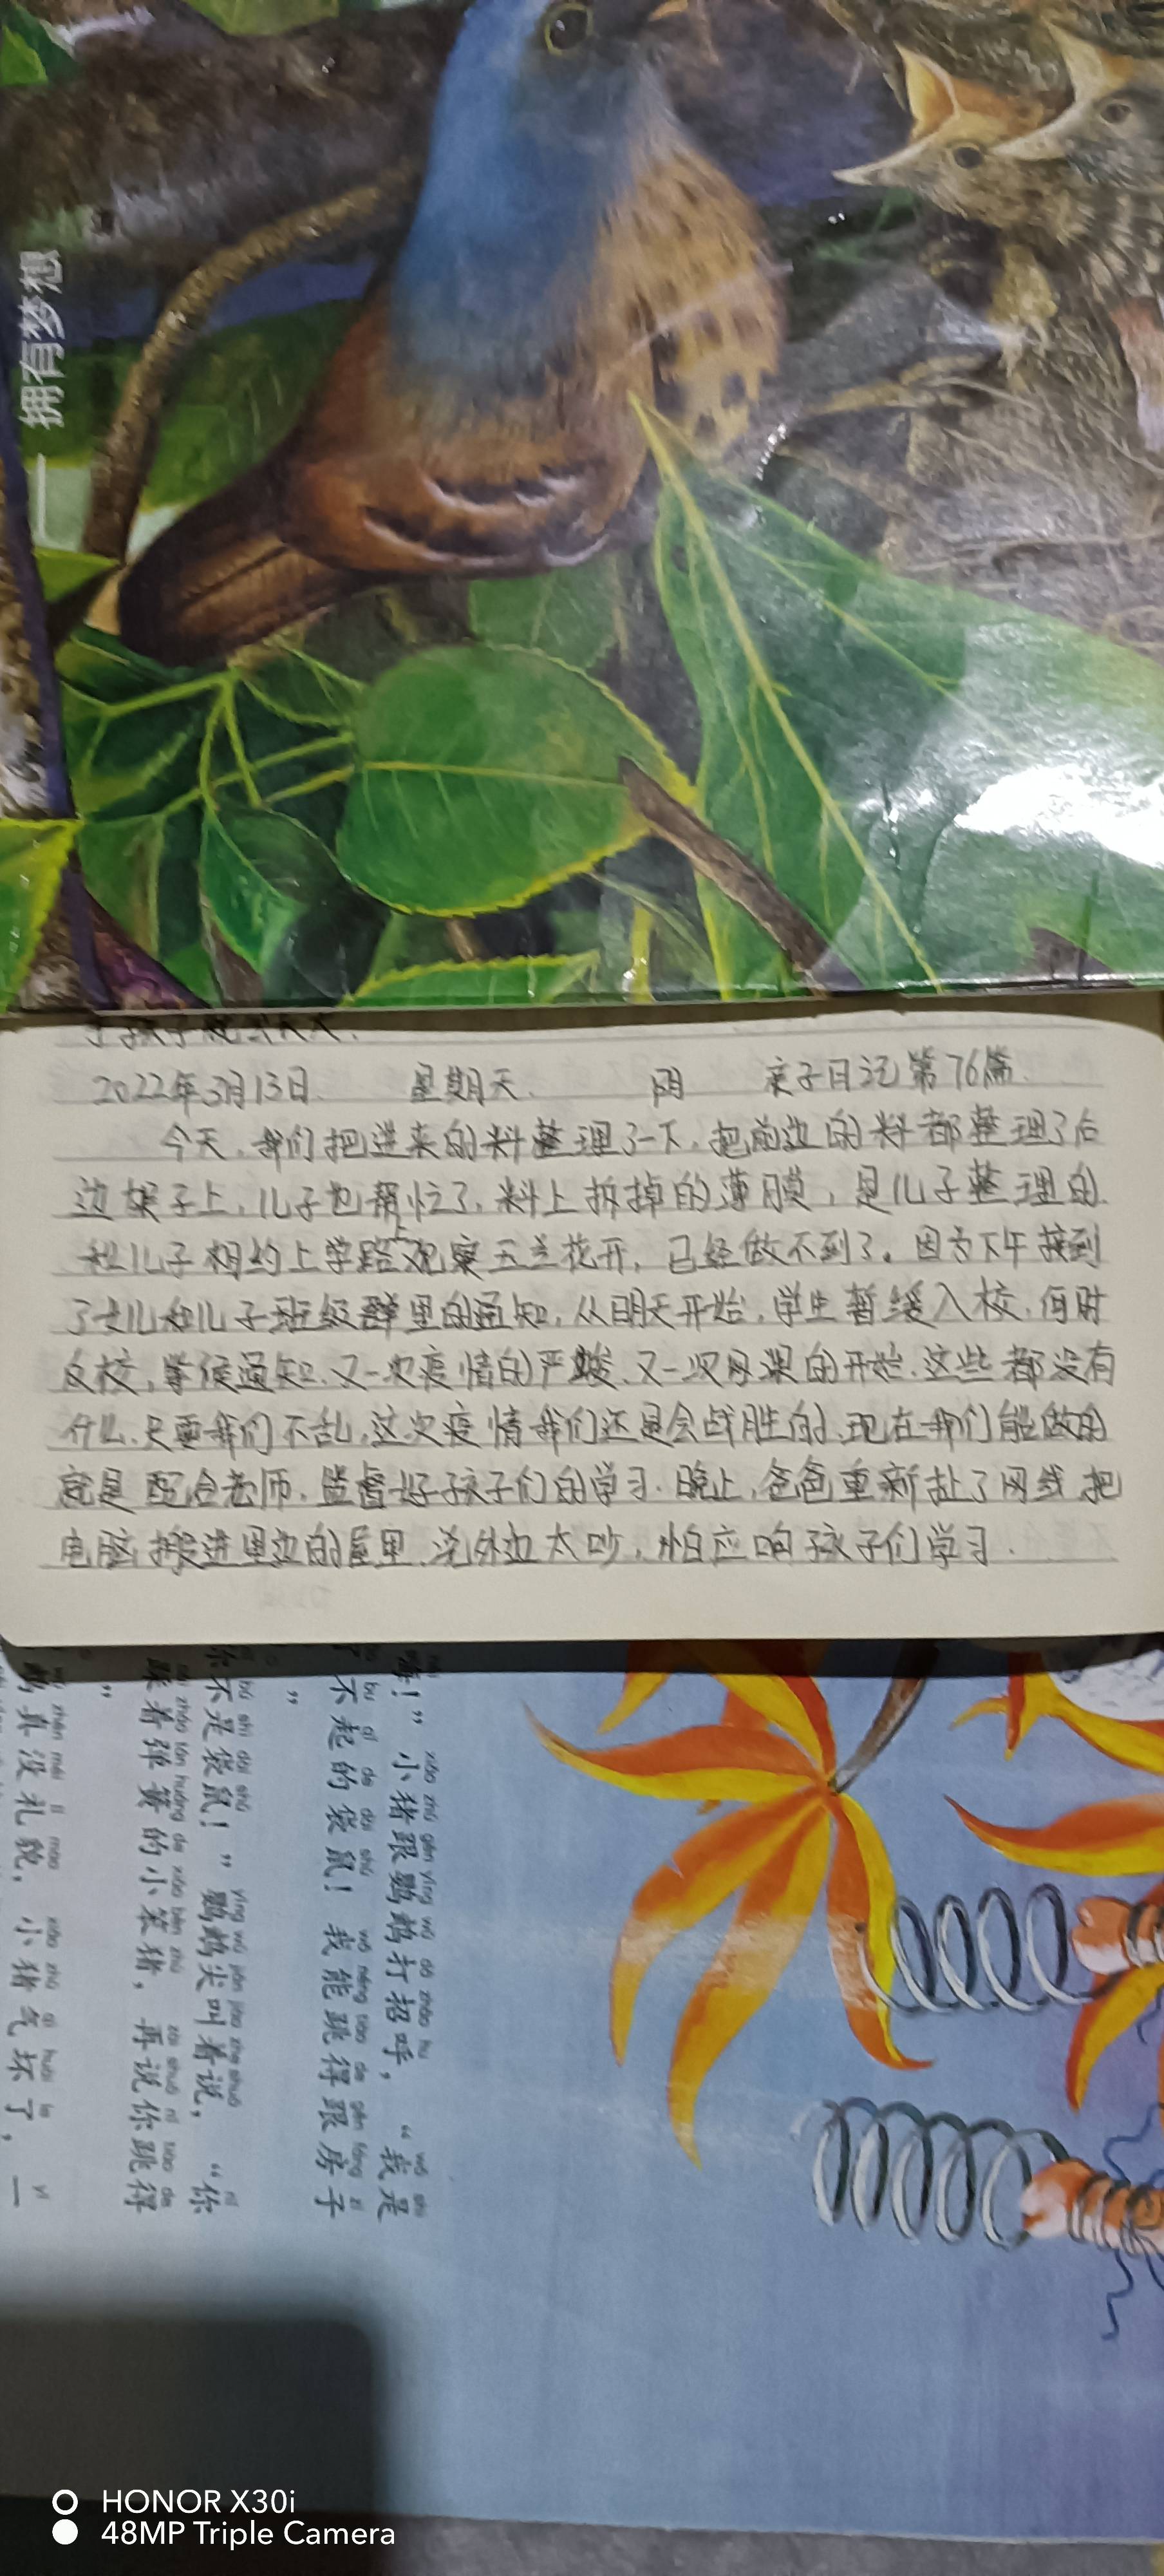 ——拥有梦想
2022年3月13日. 星期天. 阴 亲子日记第76篇.
今天,我们把进来的料整理了一下,把前边的料都整理了后
边架子上,儿子也帮忙了,料上拆掉的薄膜,是儿子整理的.
和儿子相约上学路上观察玉兰花开,已经做不到了。因为下午接到
了女儿和儿子班级群里的通知,从明天开始,学生暂缓入校,何时
反校,等候通知.又一次疫情的严峻,又一次网课的开始.这些都没有
什么.只要我们不乱,这次疫情我们还是会战胜的.现在我们能做的
就是配合老师,监督好孩子们的学习.晚上,爸爸重新扯了网线把
电脑搬进里边的屋里,说外边太吵,怕应响孩子们学习.
嗨!”小猪跟鹦鹉打招呼,“我是
了不起的袋鼠!我能跳得跟房子
”
你不是袋鼠!”鹦鹉尖叫着说,“你
踩着弹簧的小笨猪,再说你跳得
”
鹉真没礼貌,小猪气坏了,一
HONOR X30i
48MP Triple Camera